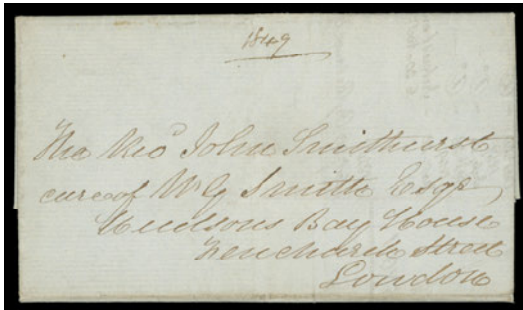 1849
The Revd John Smithurst
care of W G Smith Esqr,
Hudsons Bay House
Fenchurch Street
London